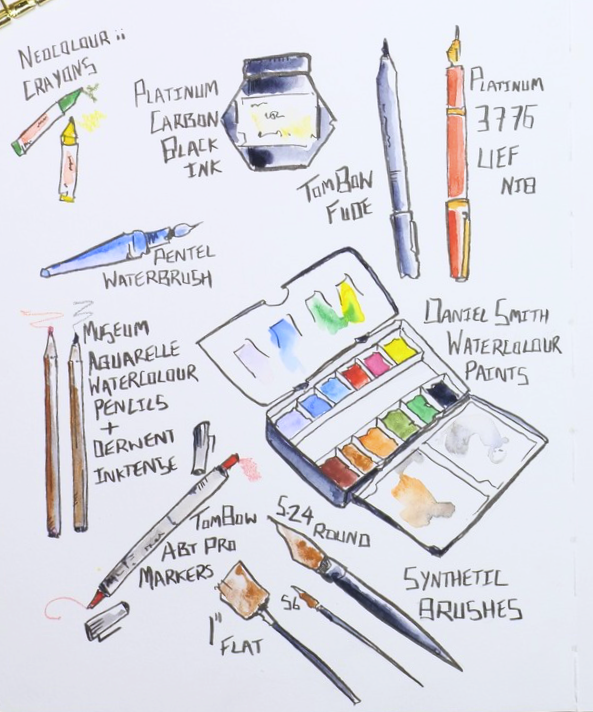 NEOCOLOUR ii
CRAYONS
PLATINUM
CARBON
BLACK
INK
TOMBOW
FUDE
PLATINUM
3776
UEF
NIB
PENTEL
WATERBRUSH
MUSEUM
AQUARELLE
WATERCOLOUR
PENCILS
+
DERWENT
INKTENSE
DANIEL SMITH
WATERCOLOUR
PAINTS
TOMBOW
ABT PRO
MARKERS
S24
ROUND
S6
1"
FLAT
SYNTHETIC
BRUSHES